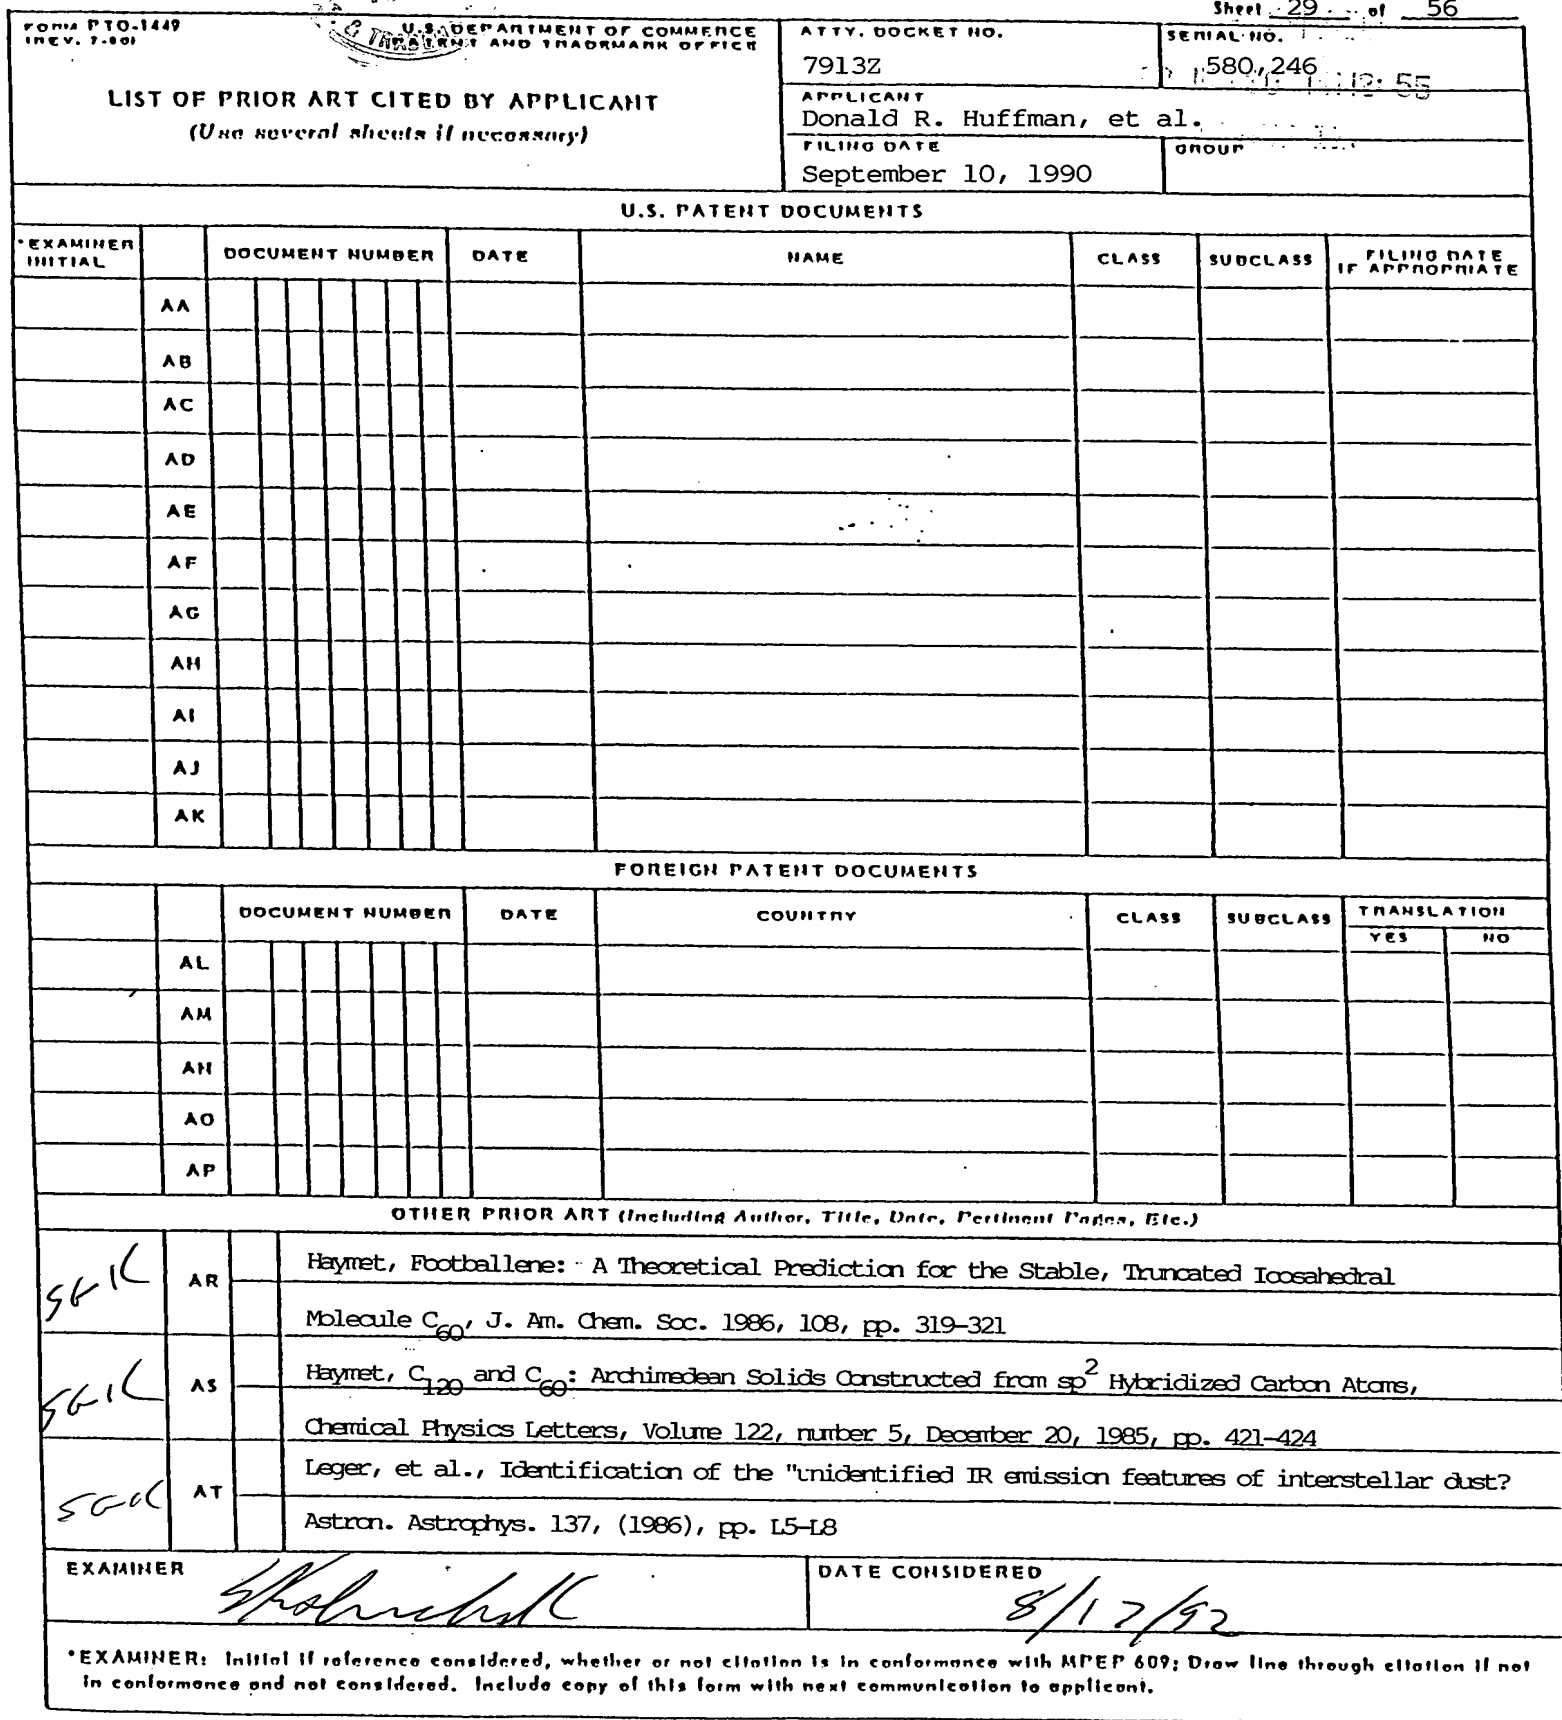 Sheet 29 of 56
FORM PTO-1449
(REV. 7-80)
U.S. DEPARTMENT OF COMMERCE
PATENT AND TRADEMARK OFFICE
ATTY. DOCKET NO.
7913Z
SERIAL NO.
580,246
12:55
LIST OF PRIOR ART CITED BY APPLICANT
(Use several sheets if necessary)
APPLICANT
Donald R. Huffman, et al.
FILING DATE
September 10, 1990
GROUP
U.S. PATENT DOCUMENTS
*EXAMINER INITIAL DOCUMENT NUMBER DATE NAME CLASS SUBCLASS FILING DATE IF APPROPRIATE
AA
AB
AC
AD
AE
AF
AG
AH
AI
AJ
AK
FOREIGN PATENT DOCUMENTS
DOCUMENT NUMBER DATE COUNTRY CLASS SUBCLASS TRANSLATION
YES NO
AL
AM
AN
AO
AP
OTHER PRIOR ART (Including Author, Title, Date, Pertinent Pages, Etc.)
SGK AR Haymet, Footballene: A Theoretical Prediction for the Stable, Truncated Icosahedral
Molecule C60, J. Am. Chem. Soc. 1986, 108, pp. 319-321
SGK AS Haymet, C120 and C60: Archimedean Solids Constructed from sp2 Hybridized Carbon Atoms,
Chemical Physics Letters, Volume 122, number 5, December 20, 1985, pp. 421-424
SGK AT Leger, et al., Identification of the "unidentified IR emission features of interstellar dust?
Astron. Astrophys. 137, (1986), pp. L5-L8
EXAMINER
DATE CONSIDERED
8/17/92
*EXAMINER: Initial if reference considered, whether or not citation is in conformance with MPEP 609; Draw line through citation if not
in conformance and not considered. Include copy of this form with next communication to applicant.